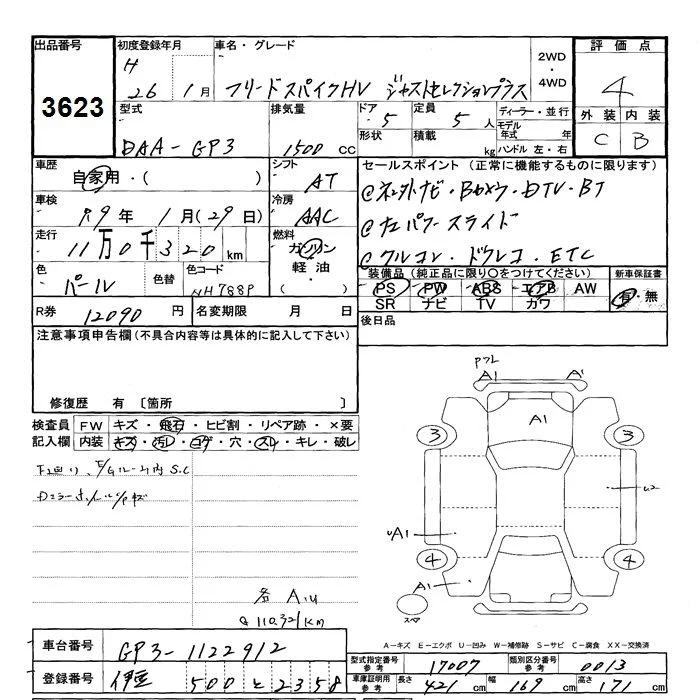 出品番号
3623
初度登録年月
H 26年 1月
車名・グレード
フリードスパイクHV ジャストセレクションプラス
2WD
・
4WD
評価点
4
外装 内装
C B
型式
DAA-GP3
排気量
1500 cc
ドア 5
形状
定員 5人
積載 kg
ディーラー・並行
モデル年式 年
ハンドル 左・右
車歴
自家用・( )
シフト
AT
車検
19年 1月(29日)
冷房
AAC
走行
11万0千320km
燃料
ガソリン
軽油・
( )
色
パール
色替
色コード
NH788P
R券 12090円
名変期限 月 日
セールスポイント (正常に機能するものに限ります)
@社外ナビ・Bカメラ・DTV・BT
@左パワースライド
@クルコン・ドラレコ・ETC
装備品 (純正品に限り○をつけてください)
PS PW ABS エアB AW
SR ナビ TV カワ
新車保証書
有・無
後日品
注意事項申告欄(不具合内容等は具体的に記入して下さい)
修復歴 有 〔箇所 〕
検査員記入欄
FW キズ・飛石・ヒビ割・リペア跡・×要
内装 キズ・汚レ・コゲ・穴・スレ・キレ・破レ
S.C
各 A.U
Q 110321KM
PフL
A1 A'
A1
3 3
U2
UA1
4 4
A1
スペア
A-キズ E-エクボ U-凹み W-補修跡 S-サビ C-腐食 XX-交換済
車台番号 GP3-1122912
登録番号 伊豆 500 と 2358
型式指定番号 参考 17007
類別区分番号 参考 0013
車庫証明用 参考 長さ 421cm 幅 169cm 高さ 171cm